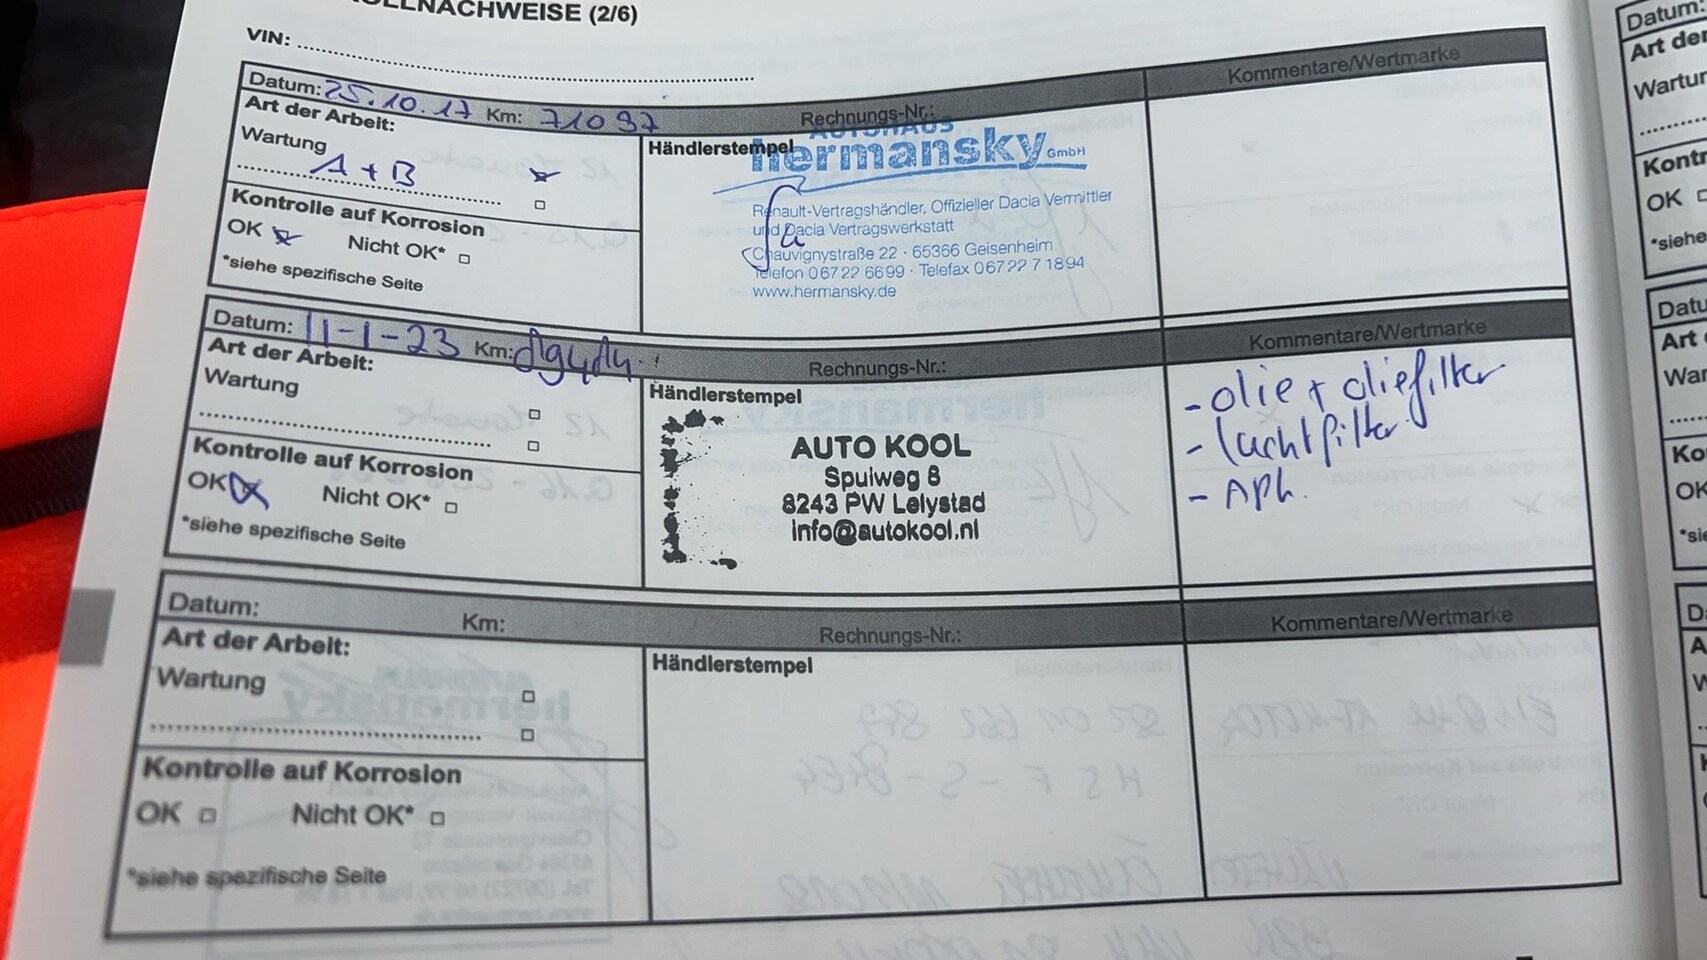 OLLNACHWEISE (2/6)
VIN:
Datum: 25.10.17 Km: 71097 Rechnungs-Nr.: Kommentare/Wertmarke
Art der Arbeit:
Wartung
A + B
Kontrolle auf Korrosion
OK Nicht OK*
*siehe spezifische Seite
Händlerstempel
AUTOHAUS
hermansky GmbH
Renault-Vertragshändler, Offizieller Dacia Vermittler
und Dacia Vertragswerkstatt
Chauvignystraße 22 · 65366 Geisenheim
Telefon 06722 6699 · Telefax 06722 71894
www.hermansky.de
Datum: 11-1-23 Km: Rechnungs-Nr.: Kommentare/Wertmarke
Art der Arbeit:
Wartung
Kontrolle auf Korrosion
OK Nicht OK*
*siehe spezifische Seite
Händlerstempel
AUTO KOOL
Spuiweg 8
8243 PW Lelystad
info@autokool.nl
- olie + oliefilter
- luchtfilter
- APK.
Datum: Km: Rechnungs-Nr.: Kommentare/Wertmarke
Art der Arbeit:
Wartung
Kontrolle auf Korrosion
OK Nicht OK*
*siehe spezifische Seite
Händlerstempel
Datum:
Art der
Wartun
Kontr
OK
*siehe
Datu
Art
War
Ko
OK
*sie